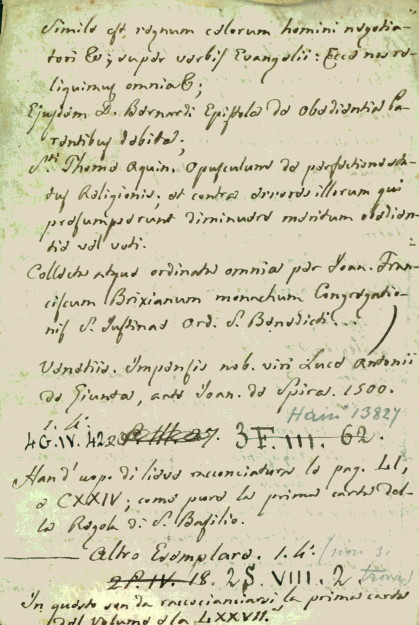 Simile est regnum cœlorum homini negotia-
tori &c; super verbis Evangelii: Ecce nos re-
liquimus omnia &c;
Ejusdem D. Bernardi Epistola de obedientia Pa-
rentibus debita;
S.ti Thomæ Aquin. opusculum de perfectione sta-
tus Religionis, et contra errores illorum qui
præsumpserunt diminuere meritum obedien-
tiæ vel voti.
Collecta atque ordinata omnia per Joan. Fran-
ciscum Brixianum monachum Congregatio-
nis S. Justinæ Ord. S. Benedicti...
Venetiis. Impensis nob. viri Lucæ Antonii
de Giunta, arte Joan. de Spira. 1500.
Hain 13827
1. 4.°
4G.IV.42 3F.III.62.
Hann' uopo di lieve racconciatura le pag. LI,
e CXXIV; come pure la prima carta del-
la Regola di S. Basilio.
Altro Esemplare. 1. 4.° (non si
trova)
2P.IV.18. 2S.VIII.2.
In questo son da racconciarsi la prima carta
del volume e la LXXVII.a